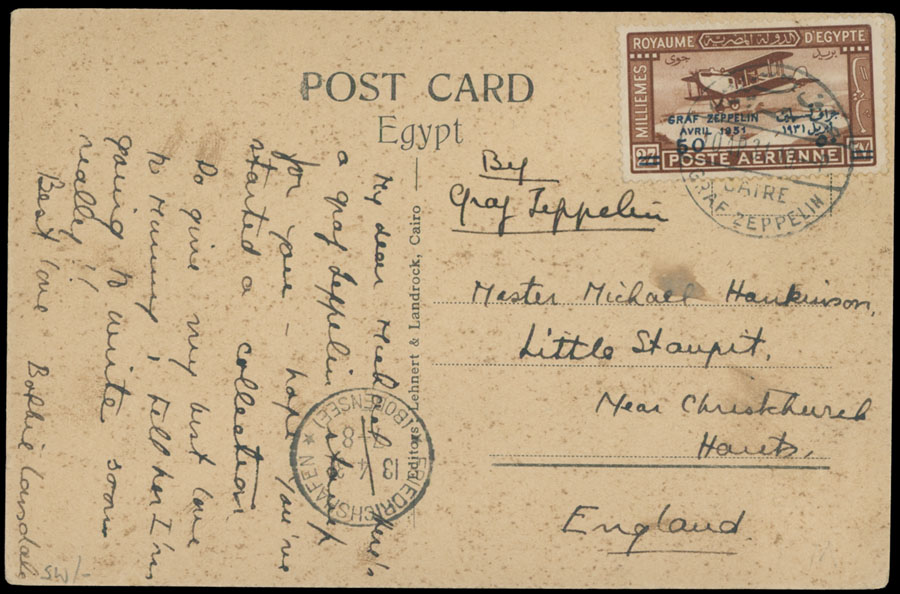 POST CARD
Egypt
ROYAUME الدولة المصرية D'EGYPTE
جوى بريد
MILLIEMES
GRAF ZEPPELIN
AVRIL 1931
١٩٣١
50
27 POSTE AERIENNE ٢٧
CAIRE
GRAF ZEPPELIN
By
Graf Zeppelin
Master Michael Hankinson,
Little Stanpit,
Near Christchurch
Hants.
England.
Editors Lehnert & Landrock, Cairo
My dear Michael here's
a graf Zeppelin stamp
for you – hope you've
started a collection
Do give my best love
to Mummy, tell her I'm
going to write soon
really!!
Best love
FRIEDRICHSHAFEN
(BODENSEE)
13
4
7-8